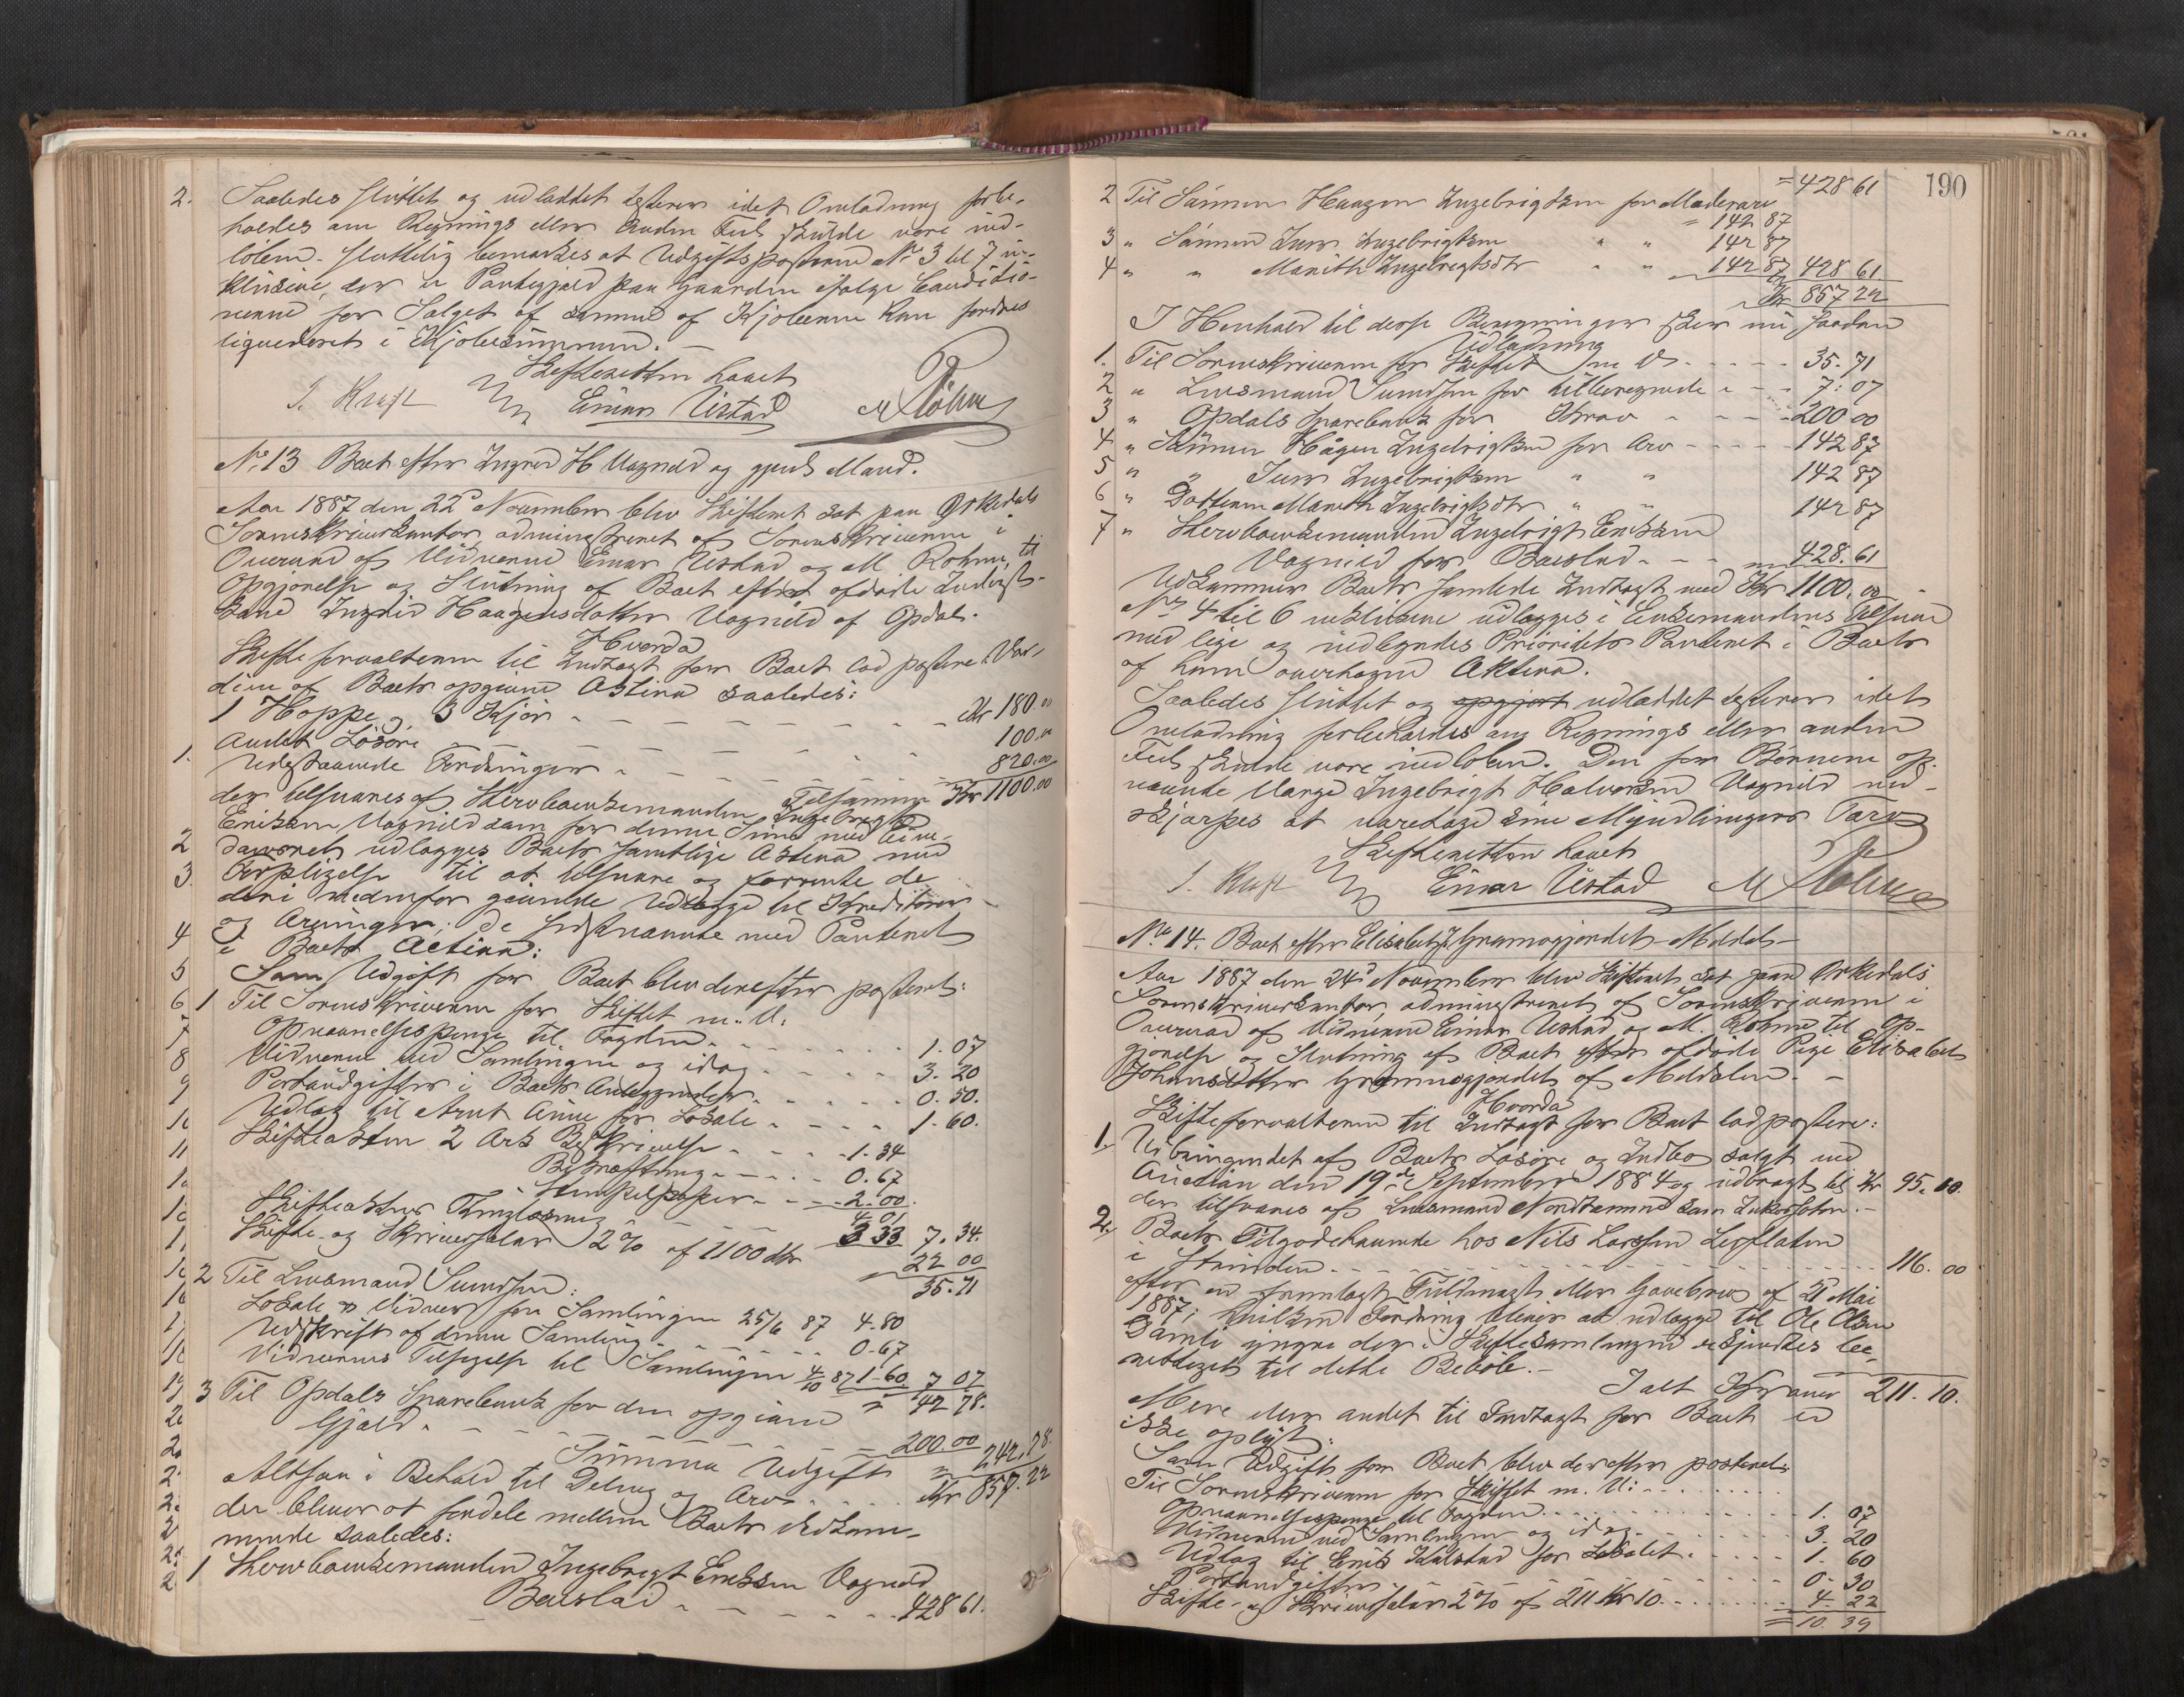 2. Saaledes sluttet og udladdet dateres idet Omladning forbe-
holdes om Regnings eller anden Feil skulde være ind-
löben. Sluttelig bemærkes at Udgiftsposterne No 3 til 7 in-
klusive, der er Pantegjæld paa Gaarden ifølge Conditio-
nerne for Salget af samme af Kjøberne kun fordres
liqvideret i Kjøbesummen. -
Skifteretten hævet
I. Kraft Einar Ustad M Röhme
No 13 Boet efter Ingrid H Vognild og gjenl Mand.
Aar 1887 den 22de November blev Skifteret sat paa Orkedals
Sorenskriverkontor, administreret af Sorenskriveren i
Overvær af Vidnerne Einar Ustad og M. Rohme, til
Opgjörelse og Slutning af Boet efter afdøde Inderst-
kone Ingrid Haagensdatter Vognild af Opdal.
Hvorda
Skifteforvalteren til Indtægt for Boet lod postere Vær-
dien af Boets opgivne Activa saaledes:
1 Hoppe og 3 Kjör - - - - Kr 180.00
Andet Lösöre - - - - 100.00
1. Udestaaende Fordringer - - - - 820.00
Tilsammen Kr 1100.00
der tilsvares af Stervboenkemanden Ingebrigt
Eriksen Vognild som for denne Sum med Ein-
2 domsret udlægges Boets samtlige Activa med
3. Forpligtelse til at tilsvare og forrente de
deri nedenfor givende Udlægge til Kreditorer
4 og Arvinger; De sidstnævnte med Panteret
i Boets Activa:
5 Som Udgift for Boet blev derefter posteret:
6 1 Til Sorenskriveren for Skiftet m. V.
7 Opnævnelsespenge til Fogden - - - 1.07
8 Vidnerne ved Samlingen og idag - - - 3.20
9 Portoudgifter i Boets Anliggender - - - 0.50.
10 Udlæg til Arnt Aune for Lokale - - - 1.60.
11 Skifteakten 2 Ark Beskrivelse - - - 1.34
Bekræftning - - - 0.67
Stempelpapir - - - 2.00.
4.01
Skifteaktens Thinglæsning 3 33 7.34.
Skifte- og Skriversalær 2% af 1100 Kr 22 00
35.71
2 Til Lensmand Sundsen:
Lokale & Vidner for Samlingen 25/6 87 4.80
Udskrift af denne Samling - - - 0.67
Vidnernes Tilsigelse til Samlingen 4/10 87 1.60 7 07
3 Til Opdals Sparebank for den opgivne 42 78.
Gjæld - - - - 200.00
Summa Udgift 242.78.
Altsaa i Behold til Deling og Arv - - - Kr 857.22
der bliver at fordele mellem Boets Vedkom-
mende saaledes:
1 Stervboenkemanden Ingebrigt Eriksen Vognild
Boeslod - - - - 428 61.
190
= 428 61
2 Til Sønnen Haagen Ingebrigtsen for Mødrearv = 142 87
3 " Sønnen Iver Ingebrigtsen " " 142 87
4 " " Marith Ingebrigtsdtr " " 142 87 428 61
Kr 857 22
I Henhold til disse Beregninger sker nu saadan
Udlodning
1. Til Sorenskriveren for Skiftet m V - - - - 35.71
2 " Lensmand Sundsen for tilberegnede - - - 7.07
3 " Opdals Sparebank for Krav - - - - 200 00
4 " Sønnen Hågen Ingebrigtsen for Arv - - - 142 87
5 " " Iver Ingebrigtsen " " 142 87
6 " Datteren Marith Ingebrigtsdtr " " 142 87
7 " Stervboenkemanden Ingebrigt Eriksen
Vognild for Boeslod - - - 428.61
Udkommer Boets samlede Indtægt med Kr 1100.00
No 4 til 6 inklusive udlægges i Enkemandens Tilsvar
med lige og nedlyndes Prioritets Panteret i Boets
af ham overtagne Aktiva.
Saaledes sluttet og opgjort udladdet dateres idet
Omladning forbeholdes om Regnings eller anden
Feil skulde være indloben. Den for Børnene op-
nævnte Værge Ingebrigt Halvorsen Vognild ind-
skjærpes at varetage sine Myndlingers Tarv.
Skifteretten hævet
I. Kraft Einar Ustad M Röhme
No 14. Boet efter Elisabeth J. Gramogjerdet - Meldal -
Aar 1887 den 24de November blev Skifteret sat paa Orkedals
Sorenskriverkontor, administreret af Sorenskriveren i
Overvær af Vidnerne Einar Ustad og M. Rohme til Op-
gjörelse og Slutning af Boet efter afdöde Pige Elisabet
Johnsdatter Gramogjerdet af Meldalen. -
Hvorda
Skifteforvalteren til Indtægt for Boet lod postere:
1. Udbringendet af Boets Lösöre og Indbo solgt ved
Auction den 19de September 1884 og udbragt til Kr 95.10.
der tilsvares af Lensmand Nordtømme som Inkassator. -
2. Boets Tilgodehavende hos Nils Larsen Leiflaten
i Strinden - - - - 116.00
efter en fremlagt Fuldmagt eller Gavebrev af 21 Mai
1887; hvilken Fordring bliver at udlægge til Ole Olsen
Damli yngre der i Skiftesamlingen erkjendtes be-
rettiget til dette Beløb. -
Ialt Kroner 211.10.
Mere eller andet til Indtægt for Boet er
ikke oplyst:
Som Udgift for Boet blev derefter posteret:
Til Sorenskriveren for Skiftet m. V: - - - -
Opnævnelsespenge til Fogden - - - - 1. 07
Vidnerne ved Samlingen og idag - - - - 3. 20
Udlæg til Erik Kalstad for Lokalet - - - - 1. 60
Portoudgifter - - - - 0. 30
Skifte- og Skriversalær 2% af 211 Kr 10 - - - - 4. 22
= 10. 39